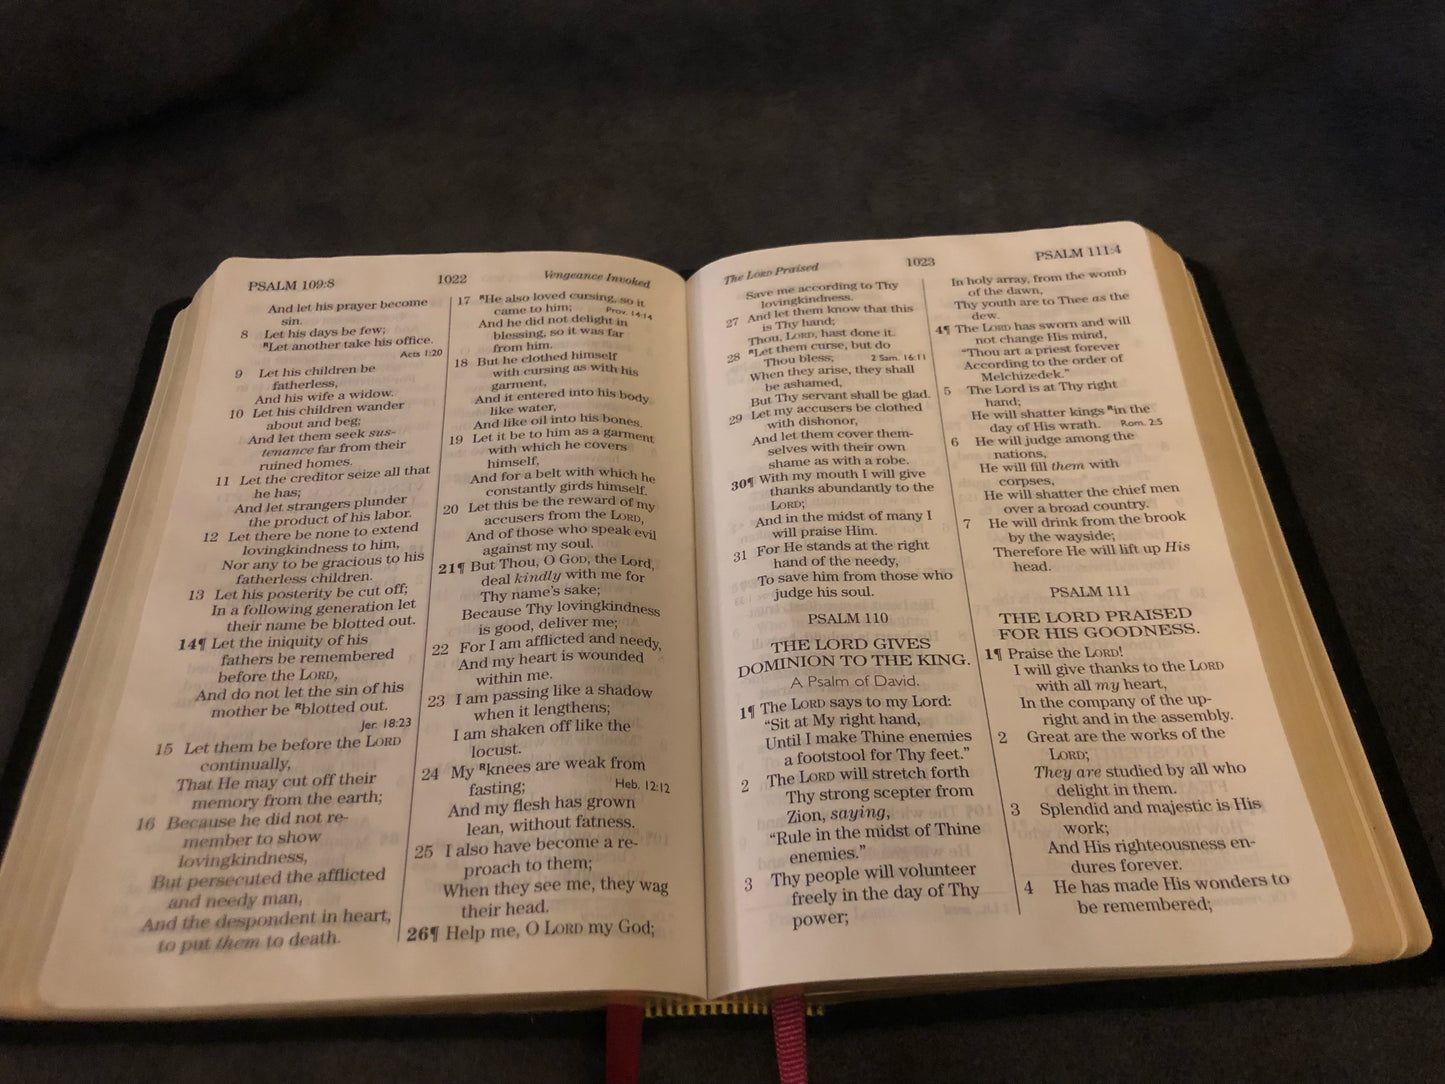 PSALM 109:8
1022
Vengeance Invoked
And let his prayer become
sin.
8 Let his days be few;
ᴿLet another take his office.
Acts 1:20
9 Let his children be
fatherless,
And his wife a widow.
10 Let his children wander
about and beg;
And let them seek sus-
tenance far from their
ruined homes.
11 Let the creditor seize all that
he has;
And let strangers plunder
the product of his labor.
12 Let there be none to extend
lovingkindness to him,
Nor any to be gracious to his
fatherless children.
13 Let his posterity be cut off;
In a following generation let
their name be blotted out.
14¶ Let the iniquity of his
fathers be remembered
before the LORD,
And do not let the sin of his
mother be ᴿblotted out.
Jer. 18:23
15 Let them be before the LORD
continually,
That He may cut off their
memory from the earth;
16 Because he did not re-
member to show
lovingkindness,
But persecuted the afflicted
and needy man,
And the despondent in heart,
to put them to death.
17 ᴿHe also loved cursing, so it
came to him; Prov. 14:14
And he did not delight in
blessing, so it was far
from him.
18 But he clothed himself
with cursing as with his
garment,
And it entered into his body
like water,
And like oil into his bones.
19 Let it be to him as a garment
with which he covers
himself,
And for a belt with which he
constantly girds himself.
20 Let this be the reward of my
accusers from the LORD,
And of those who speak evil
against my soul.
21¶ But Thou, O GOD, the Lord,
deal kindly with me for
Thy name's sake;
Because Thy lovingkindness
is good, deliver me;
22 For I am afflicted and needy,
And my heart is wounded
within me.
23 I am passing like a shadow
when it lengthens;
I am shaken off like the
locust.
24 My ᴿknees are weak from
fasting; Heb. 12:12
And my flesh has grown
lean, without fatness.
25 I also have become a re-
proach to them;
When they see me, they wag
their head.
26¶ Help me, O LORD my God;
The LORD Praised
1023
PSALM 111:4
Save me according to Thy
lovingkindness.
27 And let them know that this
is Thy hand;
Thou, LORD, hast done it.
28 ᴿLet them curse, but do
Thou bless; 2 Sam. 16:11
When they arise, they shall
be ashamed,
But Thy servant shall be glad.
29 Let my accusers be clothed
with dishonor,
And let them cover them-
selves with their own
shame as with a robe.
30¶ With my mouth I will give
thanks abundantly to the
LORD;
And in the midst of many I
will praise Him.
31 For He stands at the right
hand of the needy,
To save him from those who
judge his soul.
PSALM 110
THE LORD GIVES
DOMINION TO THE KING.
A Psalm of David.
1¶ The LORD says to my Lord:
"Sit at My right hand,
Until I make Thine enemies
a footstool for Thy feet."
2 The LORD will stretch forth
Thy strong scepter from
Zion, saying,
"Rule in the midst of Thine
enemies."
3 Thy people will volunteer
freely in the day of Thy
power;
In holy array, from the womb
of the dawn,
Thy youth are to Thee as the
dew.
4¶ The LORD has sworn and will
not change His mind,
"Thou art a priest forever
According to the order of
Melchizedek."
5 The Lord is at Thy right
hand;
He will shatter kings ᴿin the
day of His wrath. Rom. 2:5
6 He will judge among the
nations,
He will fill them with
corpses,
He will shatter the chief men
over a broad country.
7 He will drink from the brook
by the wayside;
Therefore He will lift up His
head.
PSALM 111
THE LORD PRAISED
FOR HIS GOODNESS.
1¶ Praise the LORD!
I will give thanks to the LORD
with all my heart,
In the company of the up-
right and in the assembly.
2 Great are the works of the
LORD;
They are studied by all who
delight in them.
3 Splendid and majestic is His
work;
And His righteousness en-
dures forever.
4 He has made His wonders to
be remembered;